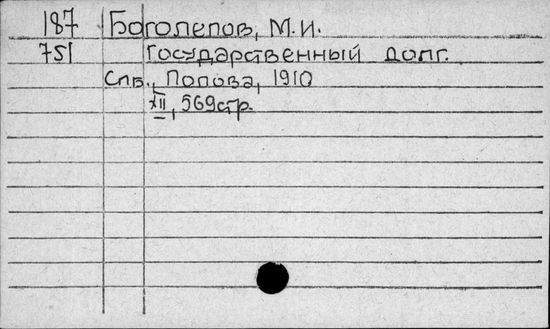 187 Боголепов, М.И.
751 Государственный долг.
Спб., Попова, 1910
XII, 569стр.